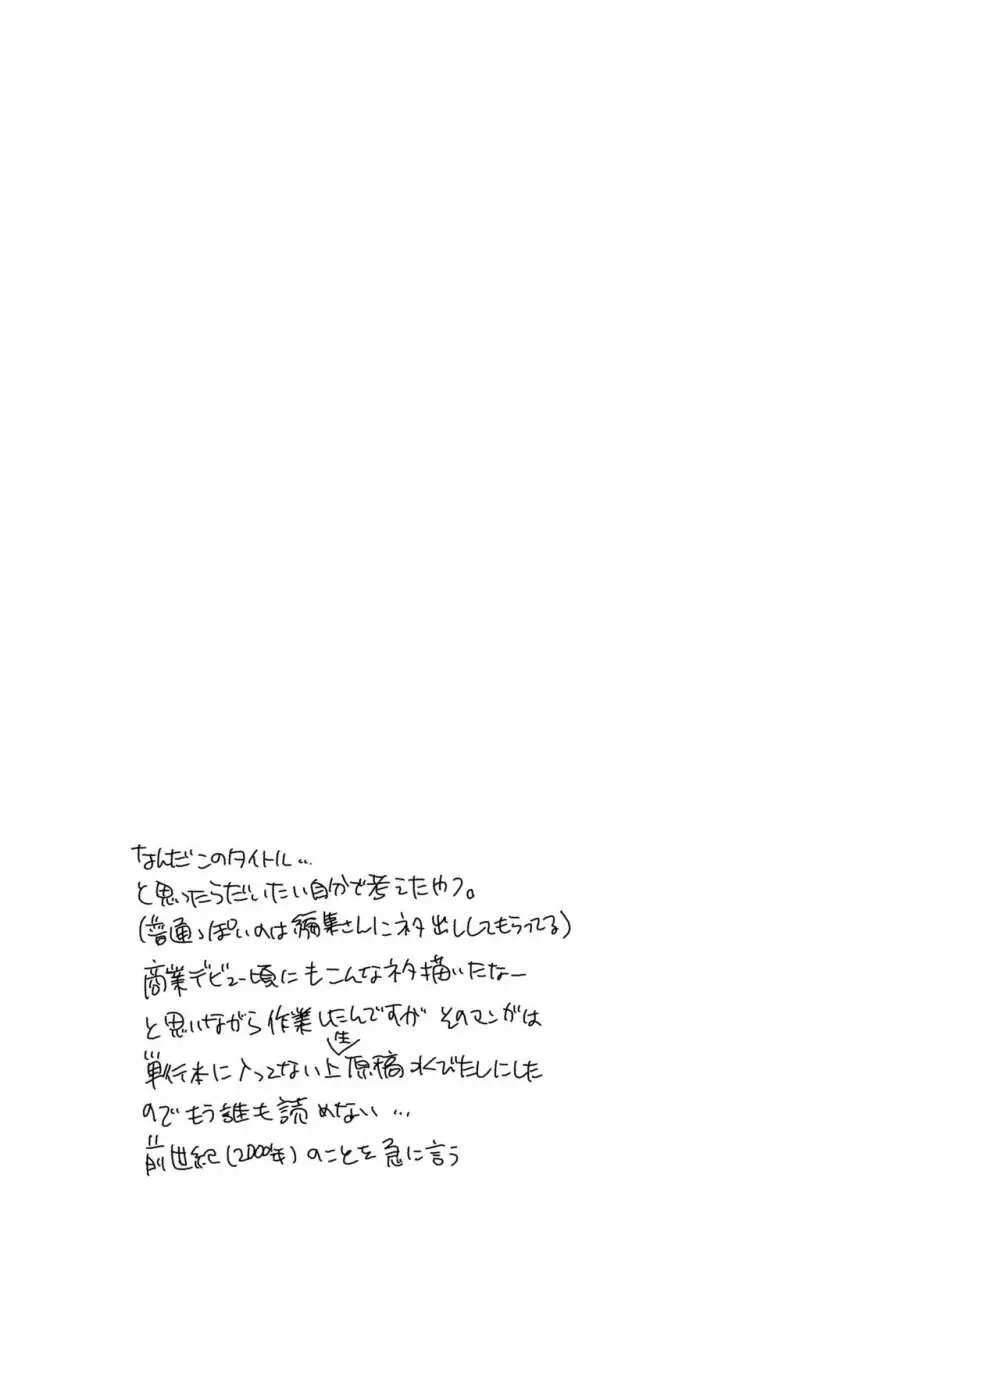 なんだこのタイトル…
と思ったらだいたい自分で考えたやつ。
(普通っぽいのは編集さんにネタ出ししてもらってる)
商業デビュー頃にもこんなネタ描いたなー
と思いながら作業したんですが そのマンガは
単行本に入ってない上生原稿水びたしにした
のでもう誰も読めない…
前世紀(2000年)のことを急に言う